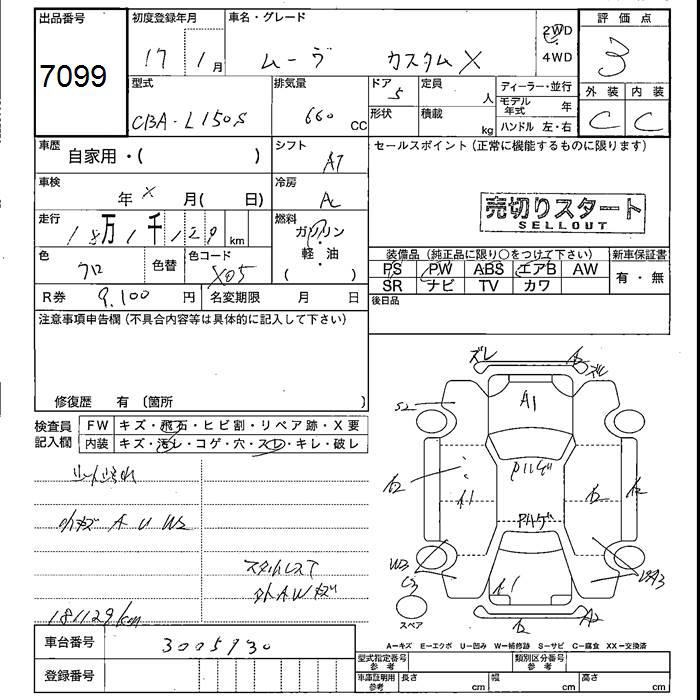 出品番号 初度登録年月 車名・グレード 評価点
7099 17 1月 ムーヴ カスタムX 2WD 4WD 3
型式 排気量 ドア 定員 ディーラー・並行 外装 内装
CBA-L150S 660 cc 5 人 モデル年式 年 C C
形状 積載 kg ハンドル 左・右
車歴 自家用・( ) シフト AT セールスポイント (正常に機能するものに限ります)
車検 年 X 月( 日) 冷房 AC
売切りスタート
SELLOUT
走行 18万1千129 km 燃料 ガソリン 軽・油 ( )
装備品 (純正品に限り○をつけて下さい) 新車保証書
色 クロ 色替 色コード X05 PS PW ABS エアB AW 有・無
SR ナビ TV カワ
R券 9,100 円 名変期限 月 日 後日品
注意事項申告欄 (不具合内容等は具体的に記入して下さい)
修復歴 有 〔箇所
検査員記入欄 FW キズ・飛石・ヒビ割・リペア跡・X要
内装 キズ・汚レ・コゲ・穴・スレ・キレ・破レ
ズレ A2 ズレ
S2 A1
A2 A1 Pハゲ
PハゲA2
シート汚れ
小キズ A U W2
スタットレスT
外AWキズ
W3 C3 A1
スペア A2
181129km
車台番号 3005930
A=キズ E=エクボ U=凹み W=補修跡 S=サビ C=腐食 XX=交換済
登録番号 型式指定番号 参考 類別区分番号 参考
車庫証明用 参考 長さ cm 幅 cm 高さ cm